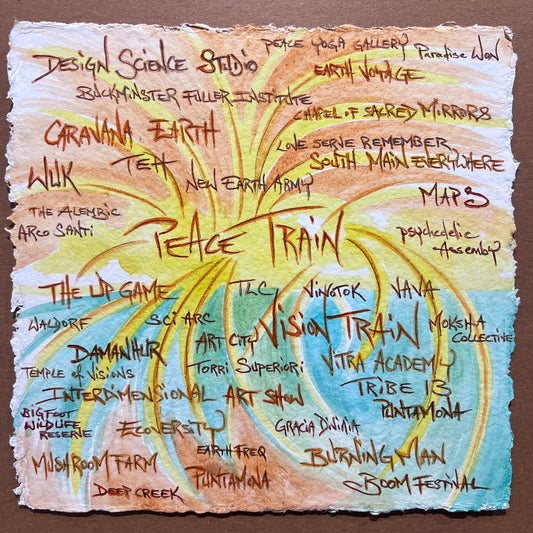 PEACE YOGA GALLERY
Paradise Won
DESIGN SCIENCE STUDIO
EARTH VOYAGE
BUCKMINSTER FULLER INSTITUTE
CHAPEL OF SACRED MIRRORS
CARAVANA EARTH
LOVE SERVE REMEMBER
TEH
SOUTH MAIN EVERYWHERE
WUK
NEW EARTH ARMY
MAPS
THE ALEMBIC
ARCO SANTI
PEACE TRAIN
psychedelic
Assembly
THE UP GAME
TLC
NINGTOK
VAVA
WALDORF
SCI ARC
VISION TRAIN
MOKSHA
COLLECTIVE
ART CITY
DAMANHUR
TEMPLE OF VISIONS
TORRI SUPERIORI
VITRA ACADEMY
INTERDIMENSIONAL ART SHOW
TRIBE 13
PUNTAMONA
BIGFOOT
WILDLIFE
RESERVE
ECOVERSITY
EARTH FREQ
BURNING MAN
MUSHROOM FARM
PUNTAMONA
DEEP CREEK
BOOM FESTIVAL